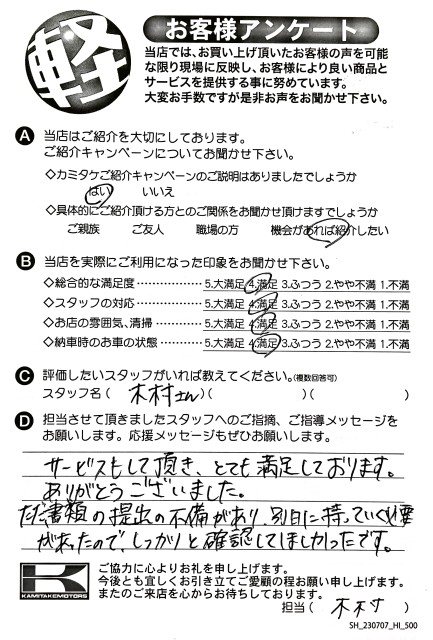 軽
お客様アンケート
当店では、お買い上げ頂いたお客様の声を可能
な限り現場に反映し、お客様により良い商品と
サービスを提供する事に努めています。
大変お手数ですが是非お声をお聞かせ下さい。
A 当店はご紹介を大切にしております。
ご紹介キャンペーンについてお聞かせ下さい。
◇カミタケご紹介キャンペーンのご説明はありましたでしょうか
はい いいえ
◇具体的にご紹介頂ける方とのご関係をお聞かせ頂けますでしょうか
ご親族 ご友人 職場の方 機会があれば紹介したい
B 当店を実際にご利用になった印象をお聞かせ下さい。
◇総合的な満足度 ⋯⋯⋯⋯⋯ 5.大満足 4.満足 3.ふつう 2.やや不満 1.不満
◇スタッフの対応 ⋯⋯⋯⋯⋯ 5.大満足 4.満足 3.ふつう 2.やや不満 1.不満
◇お店の雰囲気、清掃 ⋯⋯⋯ 5.大満足 4.満足 3.ふつう 2.やや不満 1.不満
◇納車時のお車の状態 ⋯⋯⋯ 5.大満足 4.満足 3.ふつう 2.やや不満 1.不満
C 評価したいスタッフがいれば教えてください。(複数回答可)
スタッフ名 ( 木村さん )( )( )
D 担当させて頂きましたスタッフへのご指摘、ご指導メッセージを
お願いします。応援メッセージもぜひお願いします。
サービスもして頂き、とても満足しております。
ありがとうございました。
ただ書類の提出の不備があり、別日に持っていく必要
があったので、しっかりと確認してほしかったです。
K
KAMITAKEMOTORS
ご協力に心よりお礼を申し上げます。
今後とも宜しくお引き立てご愛顧の程お願い申し上げます。
またのご来店を心からお待ちしております。
担当 ( 木村 )
SH_230707_HI_500